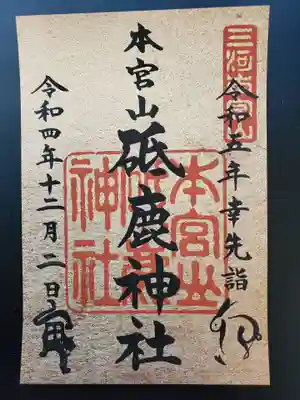 三河本宮山
令和五年幸先詣
卯
本宮山
砥鹿神社
本宮山
砥鹿
神社
令和四年十二月二日
寅